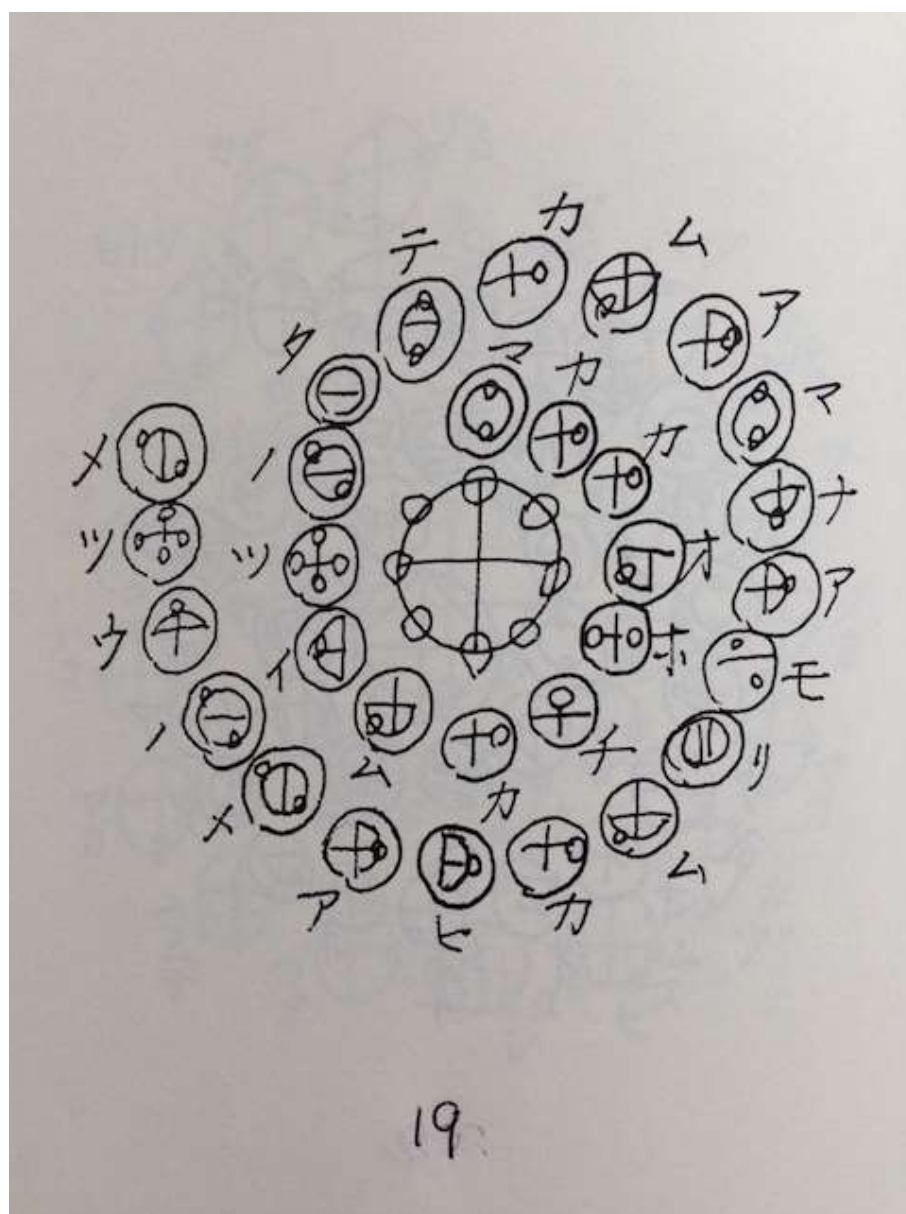 マカカオホチカムイツノタテカムアマナアモリムカヒアメノウツメ
19